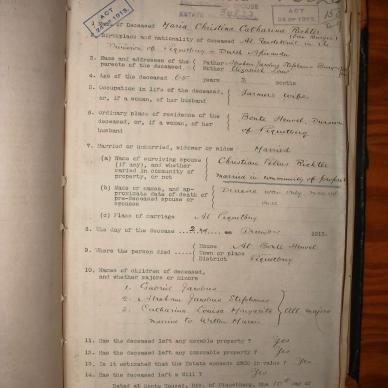 ACT
1. Name of Deceased Maria Christina Catharina Richter
2. Birthplace and nationality of deceased At Residential in the
Division of Piquetberg a Dutch Afrikander
3. Names and addresses of the parents of the deceased. { Father Abraham Jacobus Stephanus Burger
Mother Elizabeth Louw
4. Age of the deceased 65 years 2 months
5. Occupation in life of the deceased, or, if a woman, of her husband { Farmers wife
6. Ordinary place of residence of the deceased, or, if a woman, of her husband { Bonte Heuvel, Division of Piquetberg
7. Married or unmarried, widower or widow Married
(a) Name of surviving spouse (if any), and whether married in community of property, or not { Christian Petrus Richter
married in community of property
(b) Name or names, and approximate date of death of pre-deceased spouse or spouses { Deceased was only married once
(c) Place of marriage At Piquetberg
8. The day of the decease 2nd December 1913.
9. Where the person died { House At Bonte Heuvel
Town or place
District Piquetberg
10. Names of children of deceased, and whether majors or minors
1. Gabriel Jacobus
2. Abraham Jacobus Stephanus
3. Catharina Louisa Margarita
married to Willem
All majors
11. Has the deceased left any movable property ? Yes
12. Has the deceased left any immovable property ? Yes
13. Is it estimated that the Estate exceeds £300 in value ? Yes
14. Has the deceased left a Will ? Yes
Dated at Bonte Heuvel, Div. of Piquetberg, the 10th